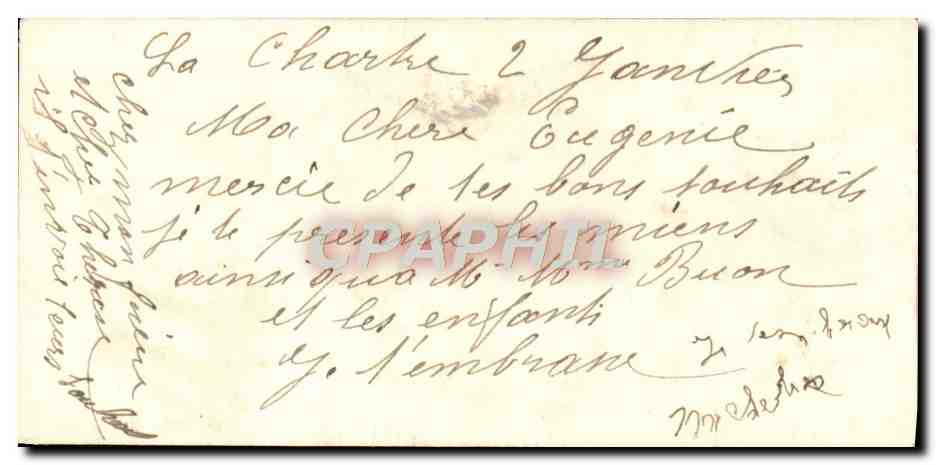 La Chartre 2 Janvier
Ma Chere Eugenie
mercie de tes bons souhaits
je te presente les miens
ainsi qua Mr Mme Buon
et les enfants
Je t'embrasse
Je
chez mon frère
et chez Therese
il t'envoie leurs
CPAPHIL